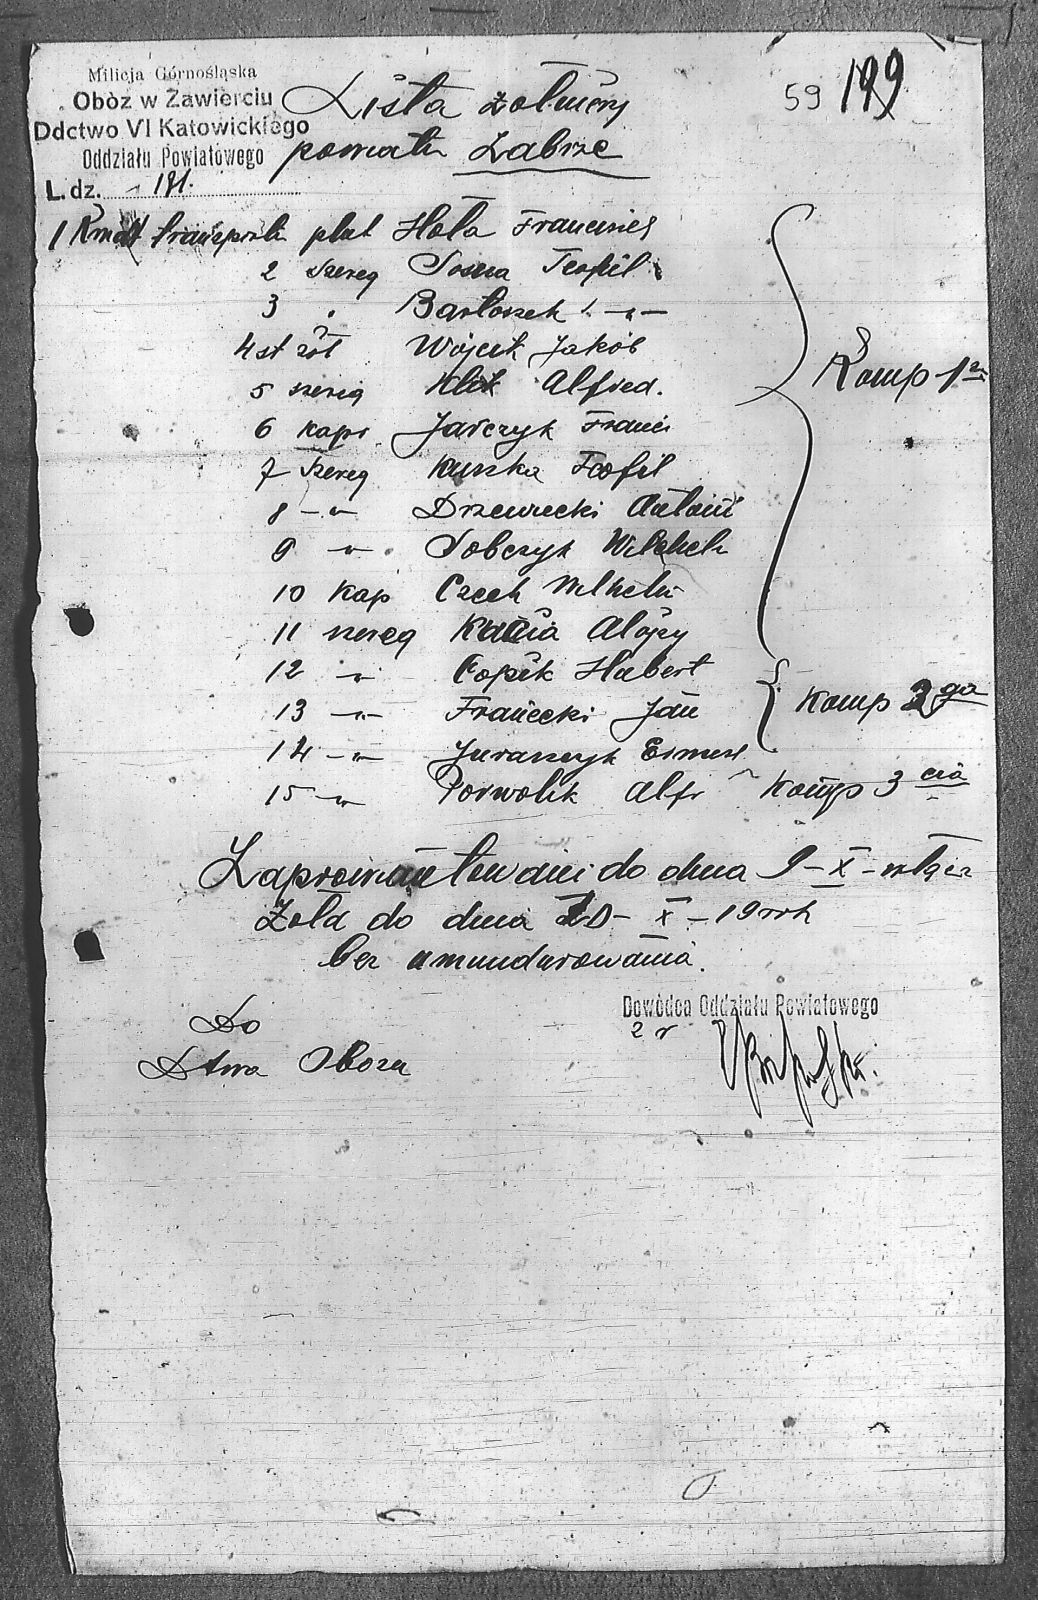 Milicja Górnośląska
Obóz w Zawierciu
Ddctwo VI Katowickiego
Oddziału Powiatowego
L. dz. 181.
59 199
Lista żołnierzy
powiatu Zabrze
1 Kmdt transportu plut Hola Franciszek
2 Szereg Sosna Teofil
3 " Bartoszek " "
4 st żoł Wójcik Jakób
5 szereg Klik Alfred.
6 kapr. Jarczyk Franci
7 Szereg Kuszka Teofil
8 - " - Drzewiecki Antoni
9 - " - Sobczyk Wilhelm
10 Kap Czech Wilhelm
11 szereg Kania Alojzy
Komp 1sza
12 - " - Copik Hubert
13 - " - Franecki Jan
14 - " - Juraszczyk Ernest
Komp 2ga
15 - " - Porwolik Alfr Komp 3cia
Zaprowiantowani do dnia 9-X- włącz
Żołd do dnia 10-X-19
bez umundurowania.
Do
Dtwa Obozu
Dowódca Oddziału Powiatowego